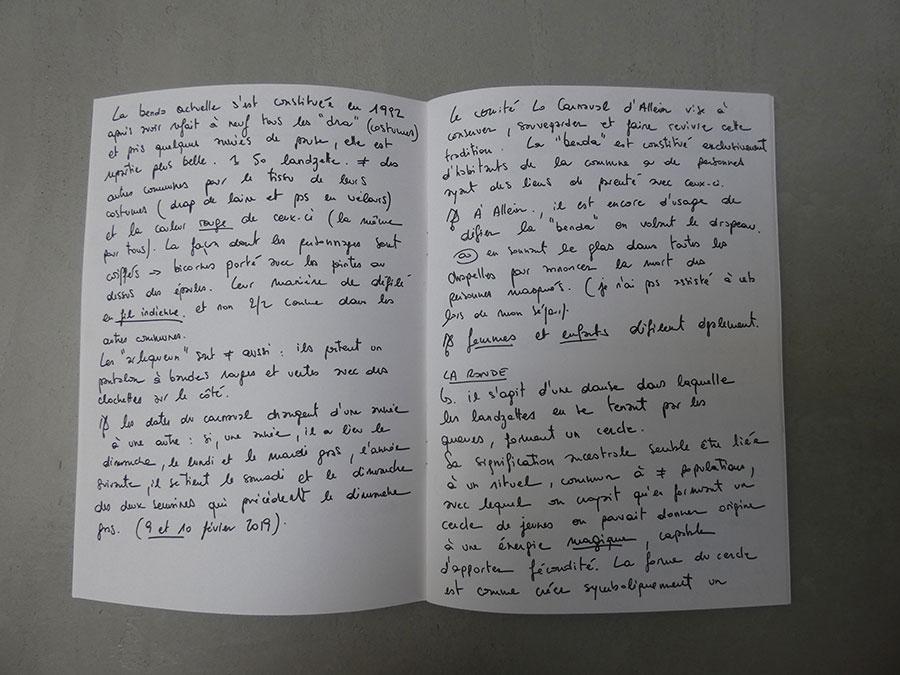 La benda actuelle s'est constituée en 1982
après avoir refait à neuf tous les "dra" (costumes)
et pris quelques années de pause, elle est
repartie plus belle. 50 landzette. ≠ des
autres communes par le tissu de leurs
costumes (drap de laine et pas en velours)
et la couleur rouge de ceux-ci (la même
pour tous). La façon dont les personnages sont
coiffés → bicornes porté avec les pointes au
dessus des épaules. Leur manière de défilé
en fil indienne, et non 2/2 comme dans les
autres communes.
Les "arlequeun" sont ≠ aussi : ils portent un
pantalon à bandes rouges et vertes avec des
clochettes sur le côté.
les dates du carnaval changent d'une année
à une autre : si, une année, il a lieu le
dimanche, le lundi et le mardi gras, l'année
suivante, il se tient le samedi et le dimanche
des deux semaines qui précédent le dimanche
gras. (9 et 10 février 2019).
Le comité Lo Carnaval d'Allein vise à
conserver, sauvegarder et faire revivre cette
tradition. La "benda" est constitué exclusivement
d'habitants de la commune ou de personnes
ayant des liens de parenté avec ceux-ci.
À Allein, il est encore d'usage de
défier la "benda" en volant le drapeau.
ou en sonnant le glas dans toutes les
chapelles pour annoncer la mort des
personnes masqués. (je n'ai pas assisté à cela
lors de mon séjour).
femmes et enfants défilent également.
LA RONDE
il s'agit d'une danse dans laquelle
les landzettes en se tenant par les
queues, forment un cercle.
Sa signification ancestrale semble être liée
à un rituel, commun à ≠ populations,
avec lequel on croyait qu'en formant un
cercle de jeunes on pouvait donner origine
à une énergie magique, capable
d'apporter fécondité. La forme du cercle
est comme créée symboliquement un